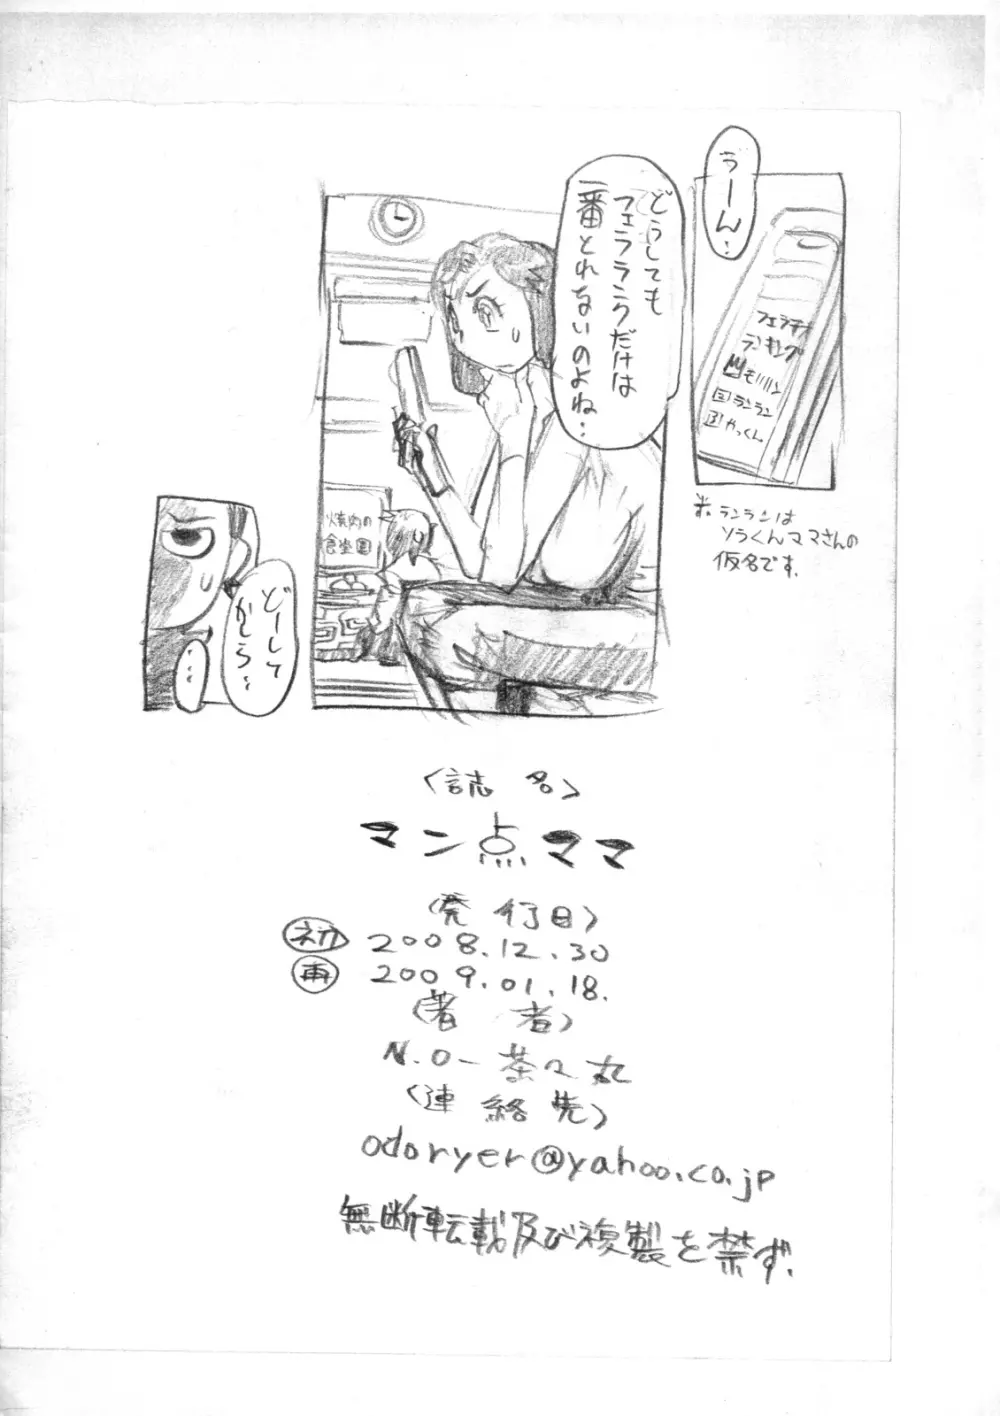 うーん…
フェラチオ
ランキング
1 モリリン
2 ランラン
3 やっくん
※ランランは
ソラくんママさんの
仮名です.
どうしても
フェラランクだけは
一番とれないのよね…
焼肉の
食楽園
どーして
かしら…
…
〈誌名〉
マン点ママ
〈発行日〉
初 2008.12.30
再 2009.01.18.
〈著者〉
N.O-茶々丸
〈連絡先〉
odoryer@yahoo.co.jp
無断転載及び複製を禁ず.